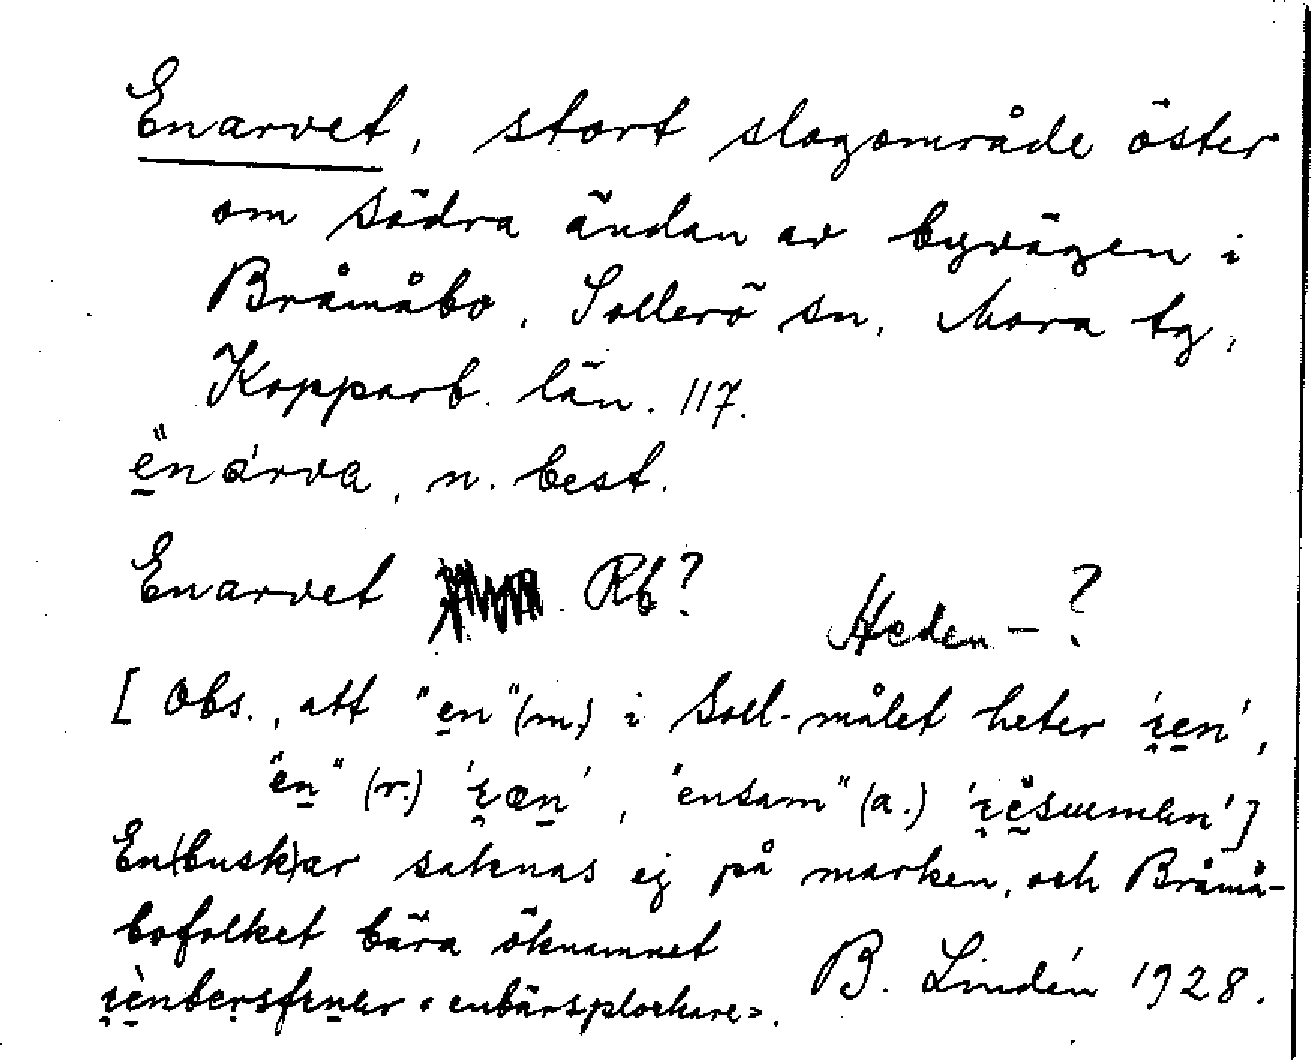 Enarvet, stort slogområde öster
om södra ändan av byvägen i
Bråmåbo, Sollerö sn, Mora tg,
Kopparb. län. 117.
ë̱nàrva, n. best.
Enarvet Rb? Heden-?
[Obs., att "e̱n" (m.) i Soll-målet heter 'i̯e̱n',
"e̱n" (r.) 'i̯œn̲', "ensam" (a.) ']
En(busk)ar saknas ej på marken, och Bråmå-
bofolket bära öknamnet
«enbärsplockare». B. Lindén 1928.